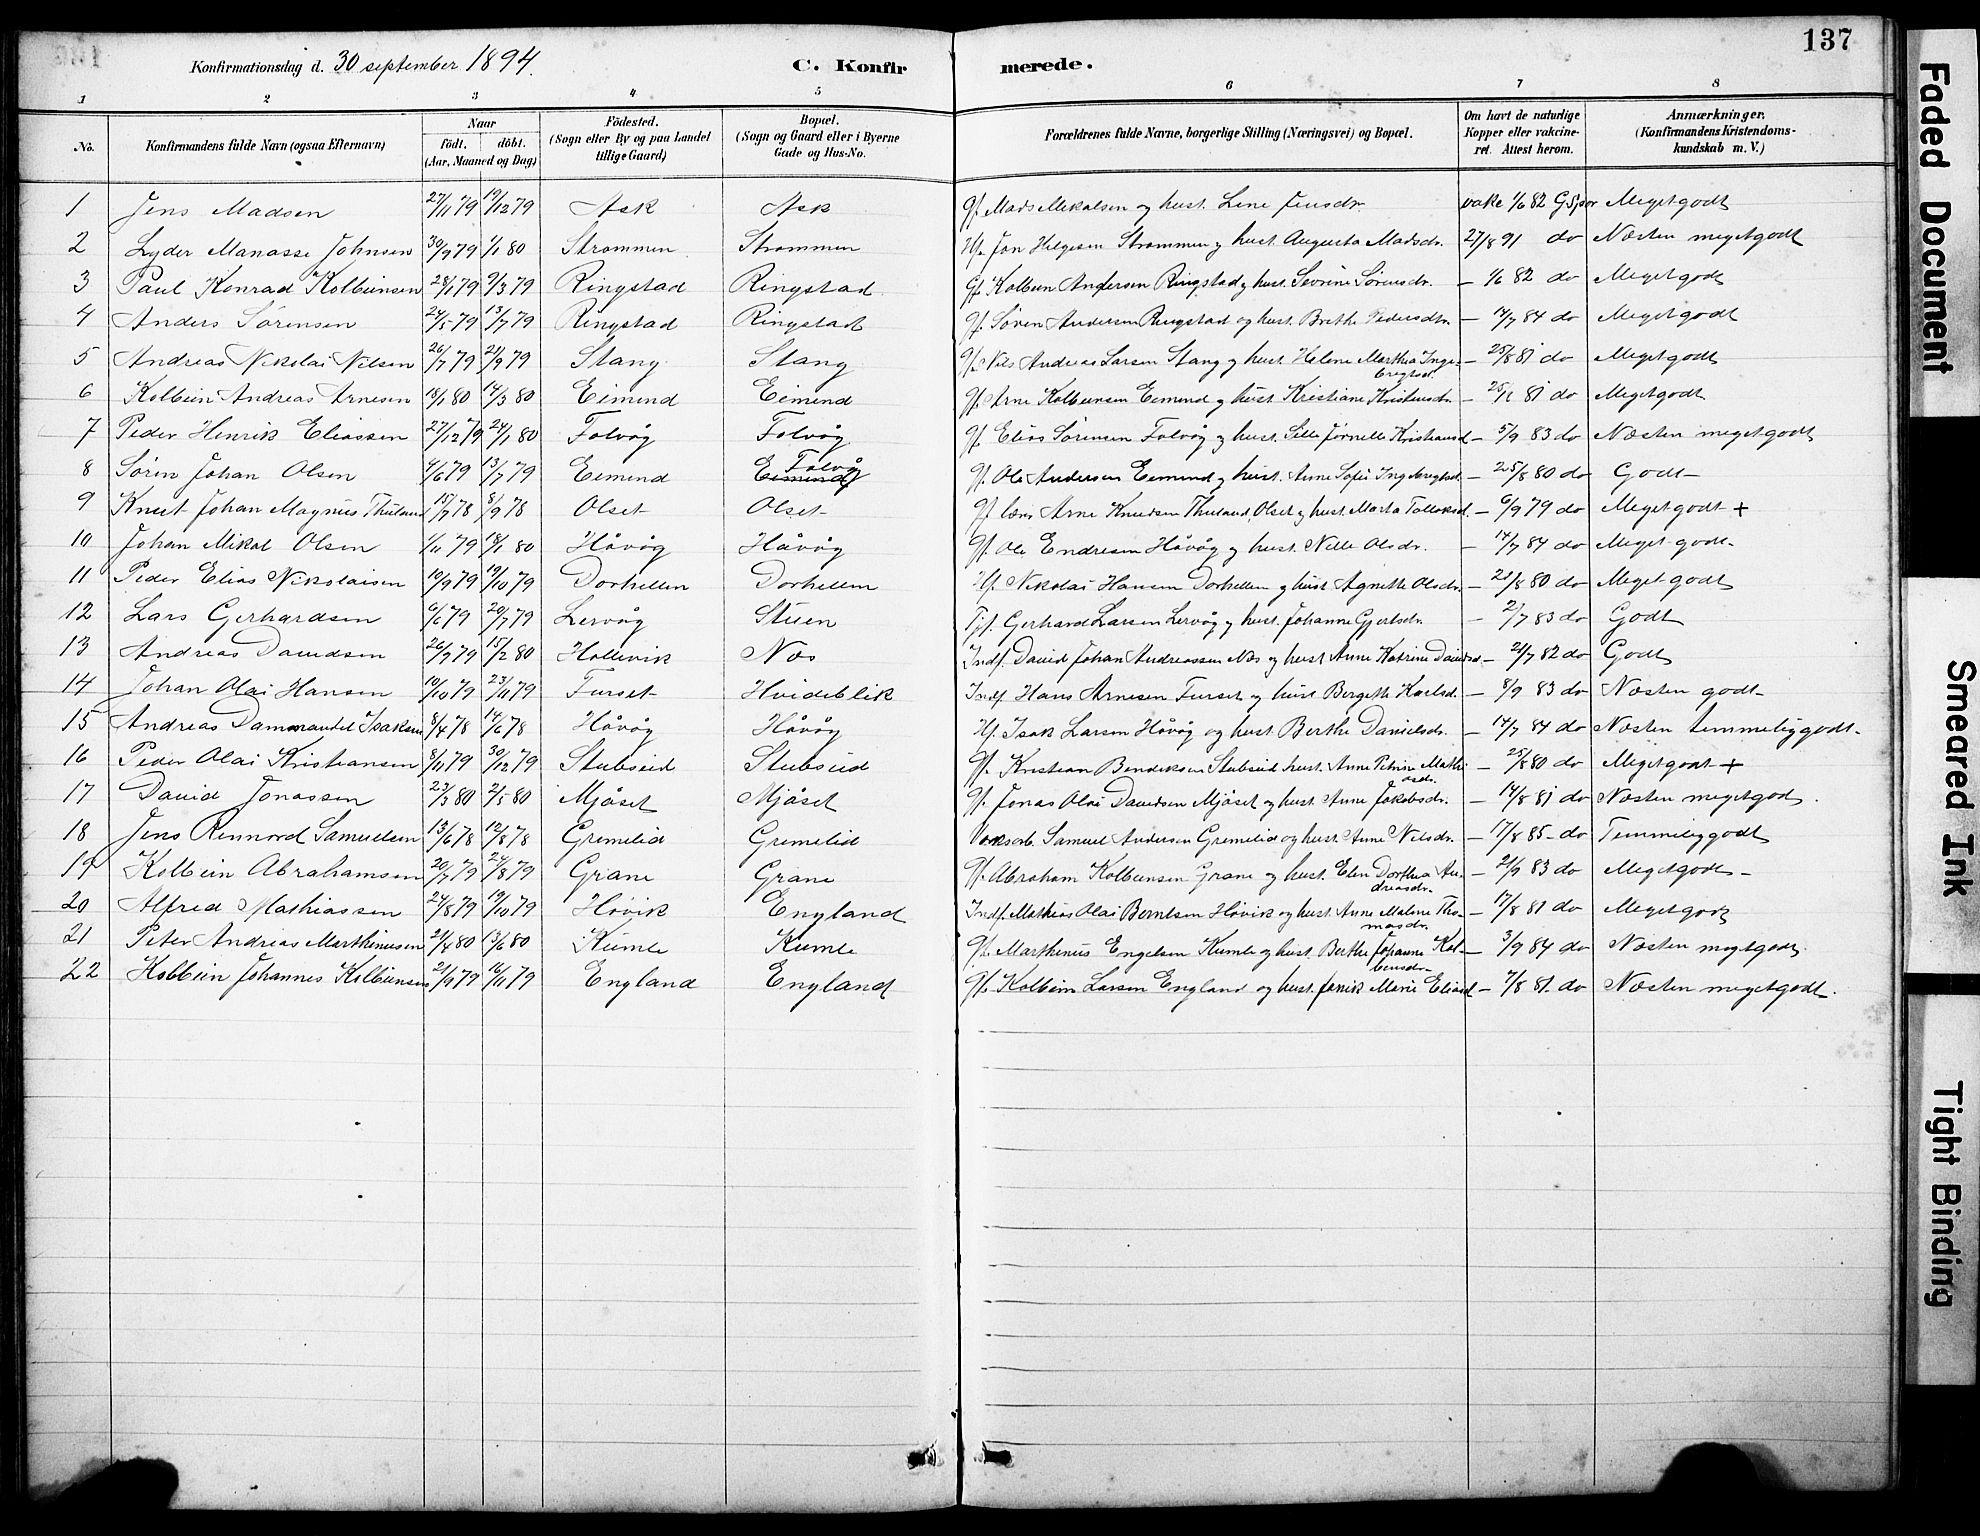 137
Konfirmationsdag d. 30 september 1894.
C. Konfirmerede.
1 2 3 4 5 6 7 8
No. Konfirmandens fulde Navn (ogsaa Efternavn) Naar født. døbt. (Aar, Maaned og Dag) Fødested. (Sogn eller By og paa Landet tillige Gaard) Bopæl. (Sogn og Gaard eller i Byerne Gade og Hus-No. Forældrenes fulde Navne, borgerlige Stilling (Næringsvei) og Bopæl. Om havt de naturlige Kopper eller vakcineret. Attest herom. Anmærkninger. (Konfirmandens Kristendomskundskab m. V.)
1 Jens Madsen 27/11 79 19/12 79 Ask Ask Gf. Mads Mikalsen og hust. Line Jensdr. vakc 1/6 82 G.Spor Meget godt
2 Lyder Manasse Johnsen 30/9 79 1/1 80 Strømmen Strømmen Hf. Jon Helgesen Strømmen og hust. Augusta Madsdr. 27/8 91 do Næsten meget godt
3 Paul Konrad Kolbeinsen 28/1 79 9/3 79 Ringstad Ringstad Gf. Kolbein Andersen Ringstad og hust. Sevrine Sørensdr. - 1/6 82 do Meget godt
4 Anders Sørensen 24/5 79 13/7 79 Ringstad Ringstad Gf. Søren Andersen Ringstad og hust. Brethe Pedersdtr. - 14/7 84 do Meget godt
5 Andreas Nikolai Nilsen 26/7 79 21/9 79 Stang Stang Gf. Nils Andreas Larsen Stang og hust. Helene Marthea Ingebregtsd. - 25/8 81 do Meget godt
6 Kolbein Andreas Arnesen 18/1 80 14/3 80 Eimind Eimind Gf. Arne Kolbeinsen Eimind og hust. Kristiane Kristensdr. - 81 do Meget godt
7 Peder Henrik Eliassen 27/12 79 24/1 80 Tolvøg Tolvøg Gf. Elias Sørensen Tolvøg og hust. Kristiansd - 5/9 83 do Næsten meget godt
8 Søren Johan Olsen 4/6 79 13/7 79 Eimind Eimind Tolvøg Gf. Ole Andersen Eimind og hust. Anne Sofie Ingebregtsd. - 25/8 80 do Godt
9 Knut Johan Magnus Thuland 15/7 78 8/9 78 Olset Olset Gf. Arne Knudsen Thuland, Olset og hust. Marta Tolleksd. - 6/9 79 do Meget godt +
10 Johan Mikal Olsen 1/11 79 18/1 80 Håvåg Håvåg Gf. Ole Endresen Håvåg og hust. Nille Olsdr. - 14/7 84 do Meget godt
11 Peder Elias Nikolaisen 10/9 79 19/10 79 Dorhellen Dorhellen Hf. Nikolai Hansen Dorhellen og hust. Agnethe Olsdr. - 25/8 80 do Meget godt
12 Lars Gerhardsen 6/6 79 20/7 79 Lervåg Stuen Gerhard Larsen Lervåg og hust. Johanne Gjertsdr. - 2/7 83 do Godt
13 Andreas Davidsen 26/9 79 15/2 80 Hollevik Næs Indf. David Johan Andreassen Næs og hust. Anne Katrine Davidsd. - 21/7 82 do Godt
14 Johan Olai Hansen 10/10 79 23/11 79 Furset Hvideblik Indf. Hans Arnesen Furset og hust. Bergette Karlsd. - 8/9 83 do Næsten godt
15 Andreas Isaksen 8/4 78 14/6 78 Håvåg Håvåg Hf. Isak Larsen Håvåg og hust. Berthe Danielsdr. - 14/7 84 do Næsten temmelig godt
16 Peder Olai Kristiansen 8/11 79 30/12 79 Stubseid Stubseid Gf. Kristian Bendiksen Stubseid hust. Anne Petrine Mathiasdr. - 25/8 80 do Meget godt +
17 David Jonassen 23/3 80 2/5 80 Mjåset Mjåset Gf. Jonas Olai Davidsen Mjåset og hust. Anne Jakobsdr. - 14/8 81 do Næsten meget godt.
18 Jens Samuelsen 13/6 78 12/8 78 Gremelid Gremelid Samuel Andersen Gremelid og hust. Anne Nilsdr. - 17/8 85 do Temmelig godt
19 Kolbein Abrahamsen 20/7 79 24/8 79 Grane Grane Gf. Abraham Kolbeinsen Grane og hust. Elen Dorthea Andreasdr. - 21/9 83 do Meget godt
20 Alfred Mathiassen 24/8 79 19/10 79 Høvik England Indf. Mathias Olai Berntsen Høvik og hust. Anne Malene Thomasdr. - 17/8 81 do Meget godt
21 Peter Andreas Marthinusen 21/4 80 13/6 80 Kumle Kumle Gf. Marthinus Engelsen Kumle og hust. Berthe Johanne Kolbensdr. - 3/9 84 do Næsten meget godt
22 Kolbein Johannes Kolbeinsen 21/9 79 16/11 79 England England Gf. Kolbein Larsen England og hust. Marie Eliasd - 7/8 81 do Næsten meget godt.
Faded Document
Smeared Ink
Tight Binding